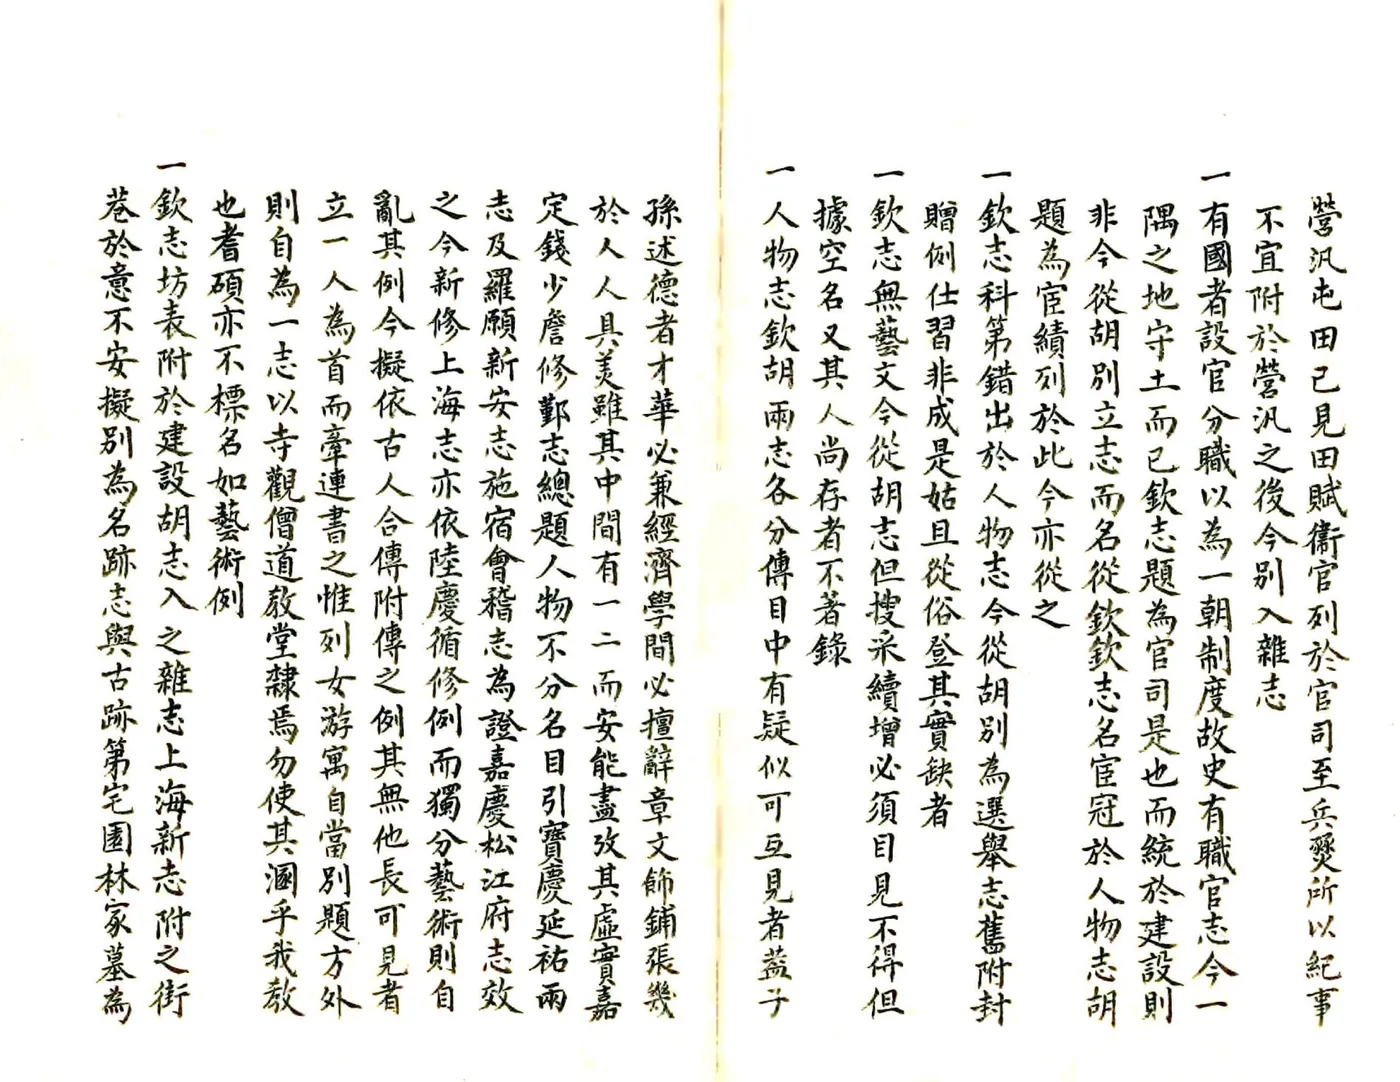 營汛屯田已見田賦衞官列於官司至兵燹所以紀事
不宜附於營汛之後今別入雜志
一有國者設官分職以為一朝制度故史有職官志今一
隅之地守土而已欽志題為官司是也而統於建設則
非今從胡別立志而名從欽欽志名宦冠於人物志胡
題為宦績列於此今亦從之
一欽志科第錯出於人物志今從胡別為選舉志舊附封
贈例仕習非成是姑且從俗登其實缺者
一欽志無藝文今從胡志但搜采續增必須目見不得但
據空名又其人尚存者不著錄
一人物志欽胡兩志各分傳目中有疑似可互見者蓋子
孫述德者才華必兼經濟學間必擅辭章文飾鋪張幾
於人人具美雖其中間有一二而安能盡攷其虛實嘉
定錢少詹修鄞志總題人物不分名目引寶慶延祐兩
志及羅願新安志施宿會稽志為證嘉慶松江府志效
之今新修上海志亦依陸慶循修例而獨分藝術則自
亂其例今擬依古人合傳附傳之例其無他長可見者
立一人為首而牽連書之惟列女游寓自當別題方外
則自為一志以寺觀僧道教堂隸焉勿使其溷乎我教
也耆碩亦不標名如藝術例
一欽志坊表附於建設胡志入之雜志上海新志附之街
巷於意不安擬別為名跡志與古跡第宅園林冢墓為